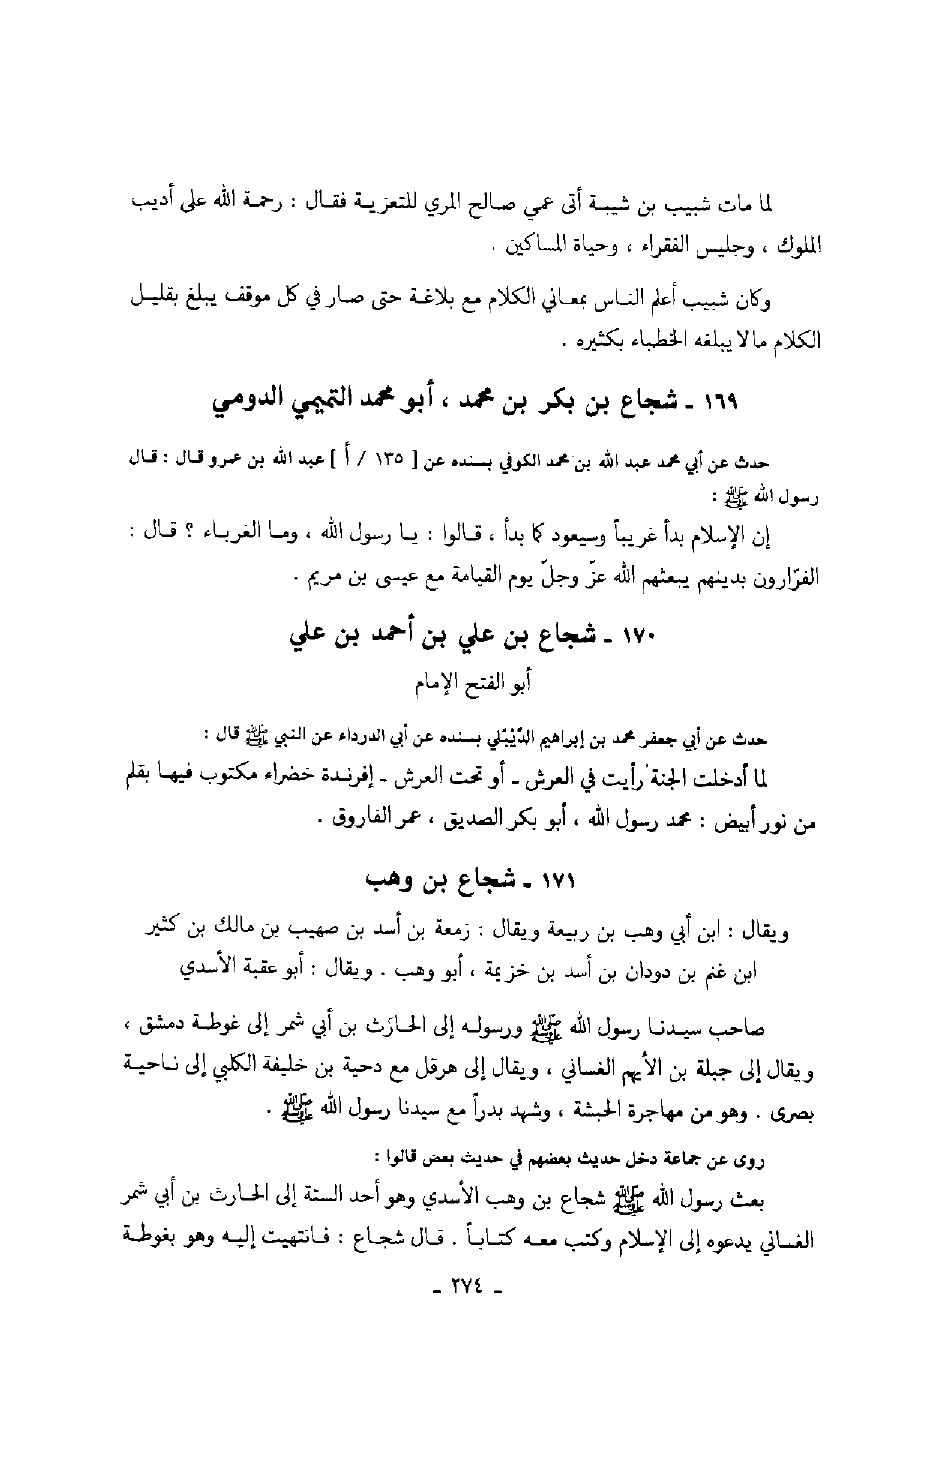 لما مات شبيب بن شيبة أتى عمي صالح المري للتعزية فقال : رحمة الله على أديب
الملوك ، وجليس الفقراء ، وحياة المساكين .
وكان شبيب أعلم الناس بمعاني الكلام مع بلاغة حتى صار في كل موقف يبلغ بقليل
الكلام مالا يبلغه الخطباء بكثيره .
١٦٩ ـ شجاع بن بكر بن محمد ، أبو محمد التميمي الدومي
حدث عن أبي محمد عبد الله بن محمد الكوفي بسنده عن [ ١٣٥ / أ ] عبد الله بن عمرو قال : قال
رسول الله ﷺ :
إن الإسلام بدأ غريباً وسيعود كما بدأ ، قالوا : يا رسول الله ، وما الغرباء ؟ قال :
الفرّارون بدينهم يبعثهم الله عزّ وجلّ يوم القيامة مع عيسى بن مريم .
١٧٠ ـ شجاع بن علي بن أحمد بن علي
أبو الفتح الإمام
حدث عن أبي جعفر محمد بن إبراهيم الدَّيْبُلي بسنده عن أبي الدرداء عن النبي ﷺ قال :
لما أدخلت الجنة رأيت في العرش ـ أو تحت العرش ـ إفرندة خضراء مكتوب فيها بقلم
من نور أبيض : محمد رسول الله ، أبو بكر الصديق ، عمر الفاروق .
١٧١ ـ شجاع بن وهب
ويقال : ابن أبي وهب بن ربيعة ويقال : زمعة بن أسد بن صهيب بن مالك بن كثير
ابن غنم بن دودان بن أسد بن خزيمة ، أبو وهب . ويقال : أبو عقبة الأسدي
صاحب سيدنا رسول الله ﷺ ورسوله إلى الحارث بن أبي شمر إلى غوطة دمشق ،
ويقال إلى جبلة بن الأيهم الغساني ، ويقال إلى هرقل مع دحية بن خليفة الكلبي إلى ناحية
بصرى . وهو من مهاجرة الحبشة ، وشهد بدراً مع سيدنا رسول الله ﷺ .
روى عن جماعة دخل حديث بعضهم في حديث بعض قالوا :
بعث رسول الله ﷺ شجاع بن وهب الأسدي وهو أحد الستة إلى الحارث بن أبي شمر
الغساني يدعوه إلى الإسلام وكتب معه كتاباً . قال شجاع : فانتهيت إليه وهو بغوطة
ـ ٢٧٤ ـ